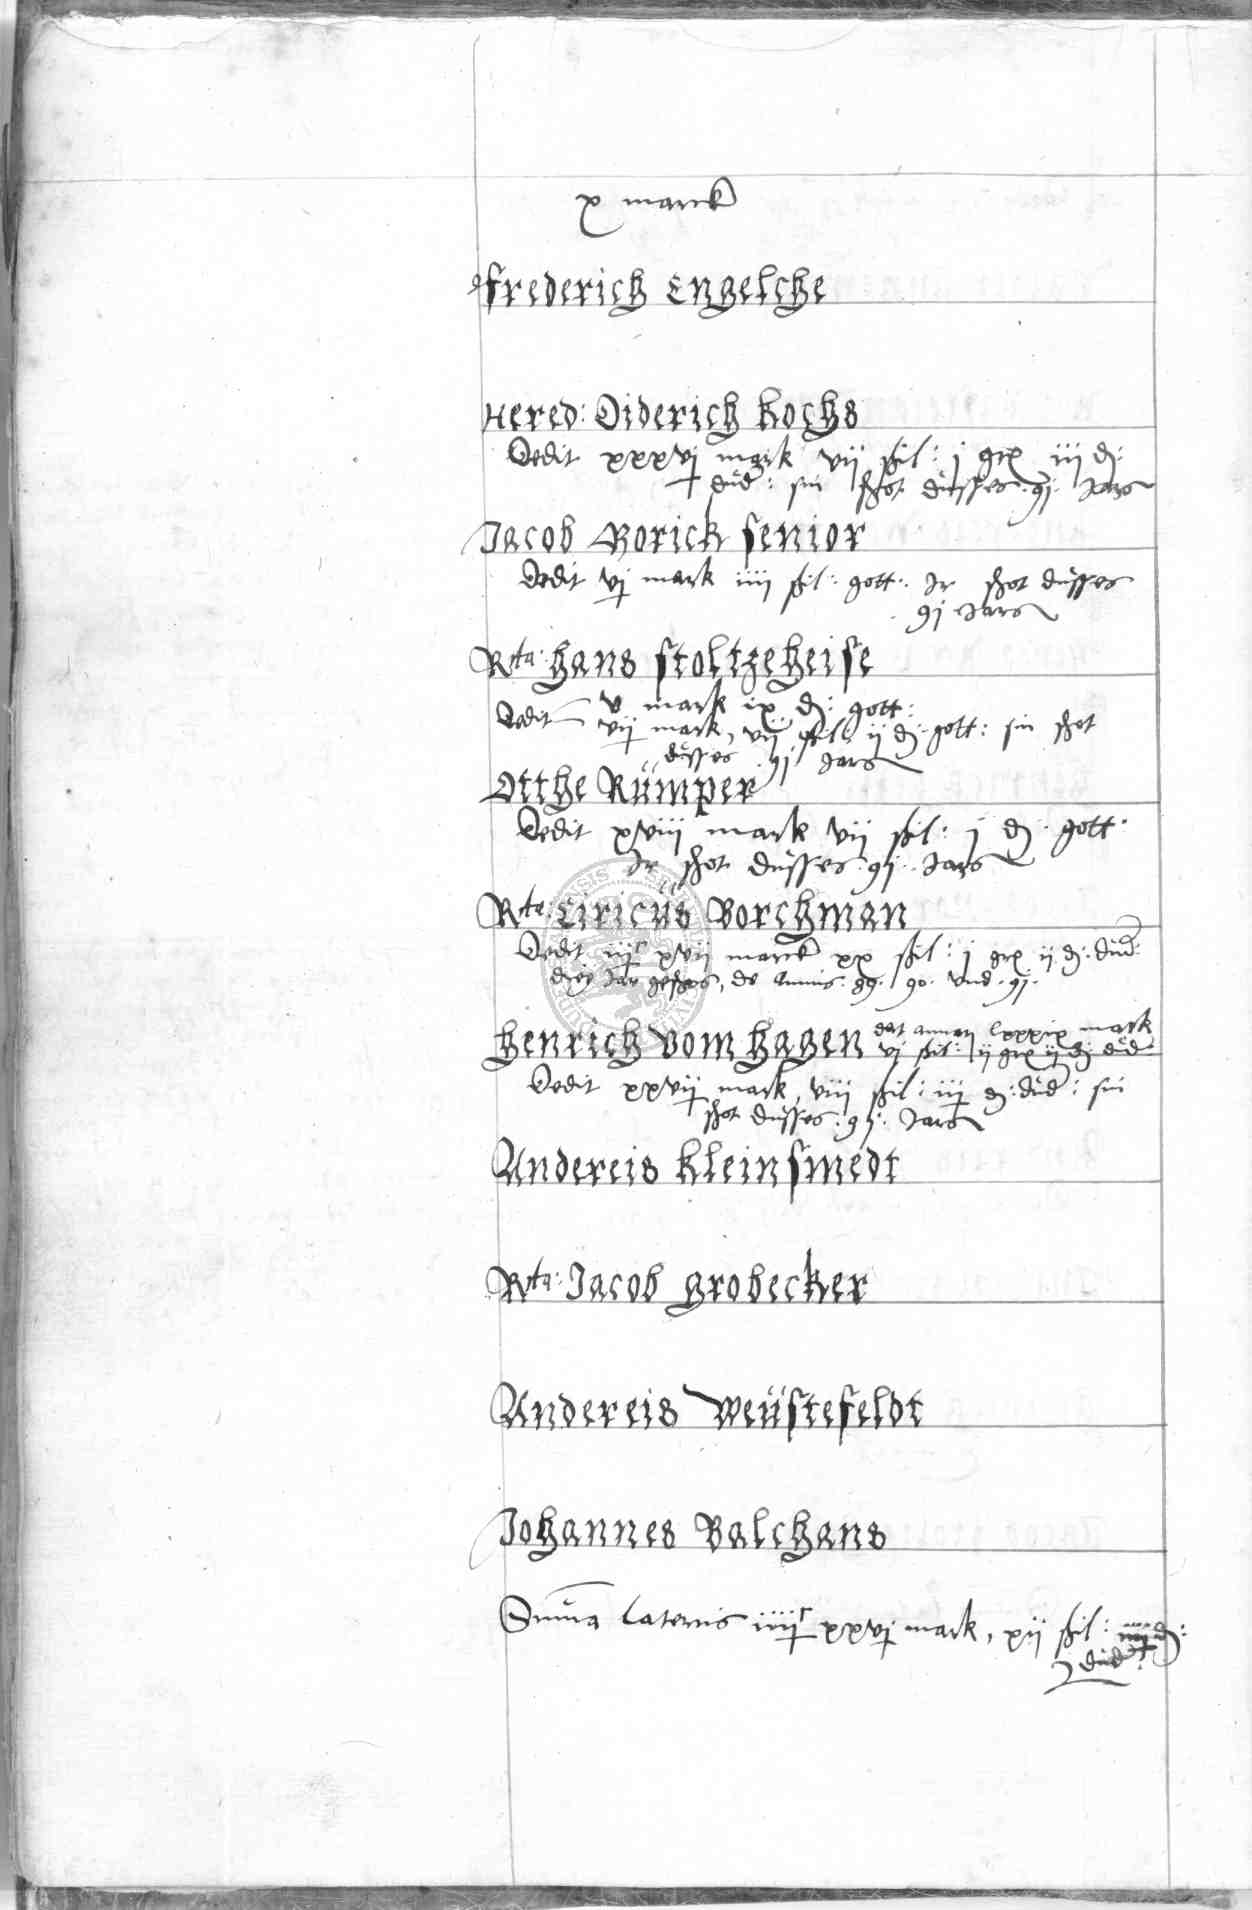 x marck
Frederich Engelche
Hered: Diderich Kochs
Dedit xxxvj mark vii ßil: j grx iii d:
düd: sin schot düsses 91 Jars
Jacob Borick senior
Dedit vj mark iiii ßil: gott: Ir schot düsses
91 Jars
Rta: Hans Stoltzeheise
Dedit v mark ix d: gott:
vij mark, vij ßil: ij d: gott: sin schot
düsses 91 Jars
Otthe Rümper
Dedit xviii mark vii ßil: j d: gott:
Ir schot düsses 91 Jars
Rta: Ciricüs Borchman
Dedit iiijc xvii marck xx ßil: j grx ij d: düd:
drej Jar geschos, de Annis 89. 90. vnd 91.
Henrich vom Hagen dat lxxxix mark
vj ßil: ij grx ij d: düd:
Dedit xxvij mark, viii ßil: iij d: düd: sin
schot düsses 91. Jars
Andereis Kleinsmedt
Rta: Jacob Grobecker
Andereis Weüstefeldt
Johannes Balchans
Suma Lateris iiiijc xxvj mark, xij ßil: d:
düd: